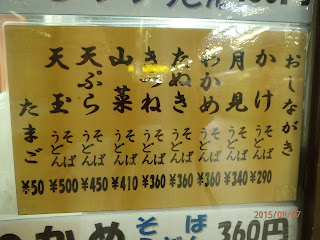 おしながき
かけ そば うどん ¥290
月見 そば うどん ¥340
わかめ そば うどん ¥360
たぬき そば うどん ¥360
きつね そば うどん ¥360
山菜 そば うどん ¥410
天ぷら そば うどん ¥450
天玉 そば うどん ¥500
たまご ¥50
かめ そば うどん 360円
2015/08/17